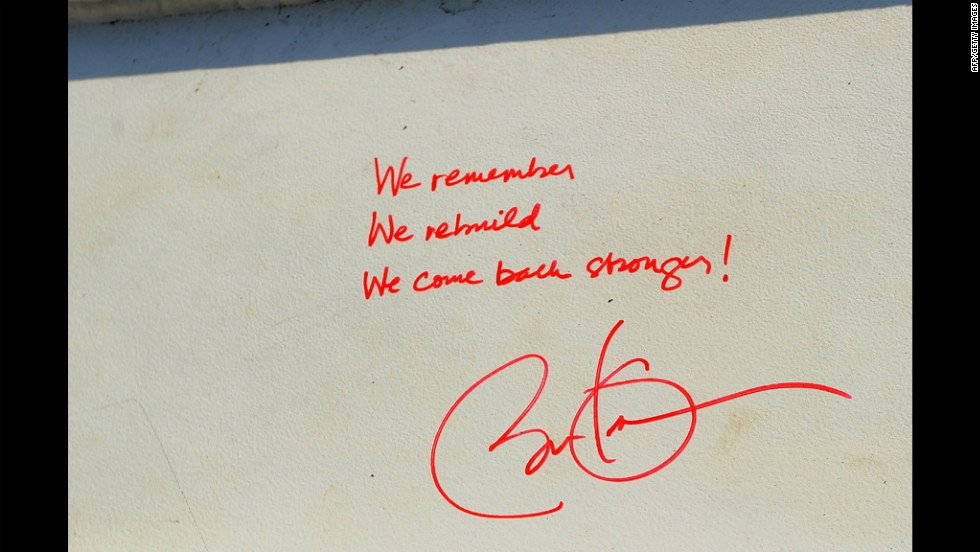 We remember
We rebuild
We come back stronger!
AFP/GETTY IMAGES